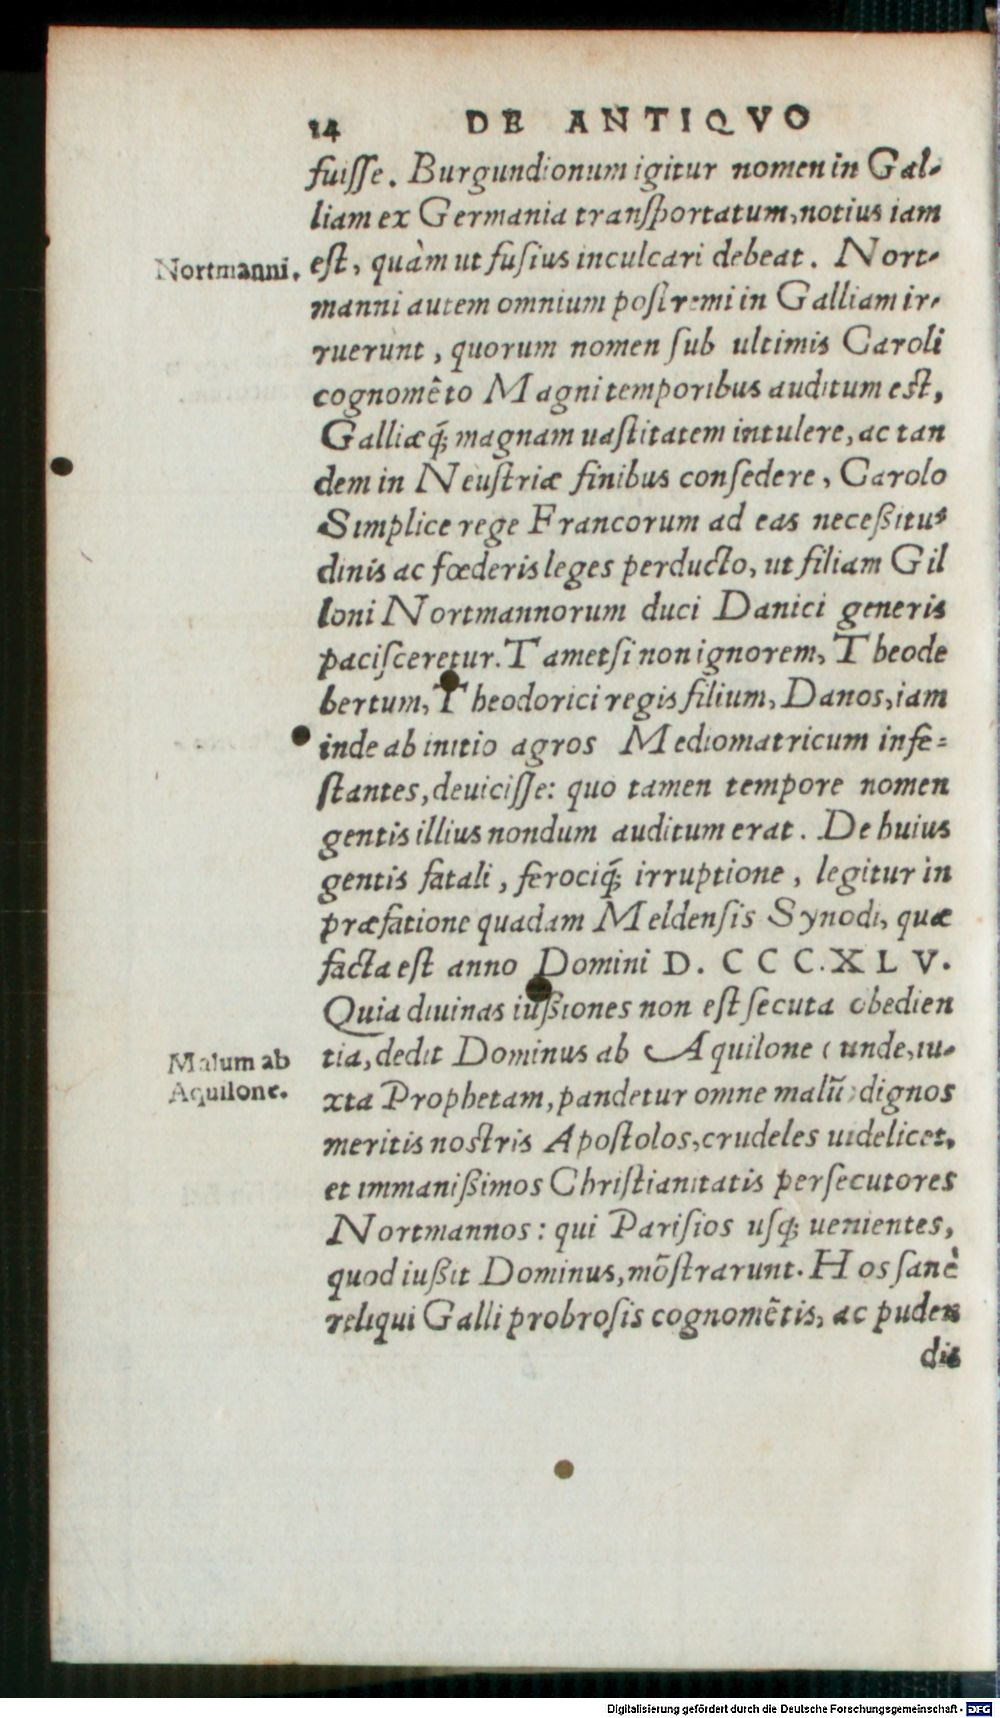 14 DE ANTIQVO
fuisse. Burgundionum igitur nomen in Gal-
liam ex Germania transportatum, notius iam
Nortmanni.
est, quàm ut fusius inculcari debeat. Nort-
manni autem omnium postremi in Galliam ir-
ruerunt, quorum nomen sub ultimis Caroli
cognomẽto Magni temporibus auditum est,
Galliæq́; magnam uastitatem intulere, ac tan
dem in Neustriæ finibus consedere, Carolo
Simplice rege Francorum ad eas necessitu-
dinis ac fœderis leges perducto, ut filiam Gil
loni Nortmannorum duci Danici generis
pacisceretur. Tametsi non ignorem, Theode
bertum, Theodorici regis filium, Danos, iam
inde ab initio agros Mediomatricum infe-
stantes, deuicisse: quo tamen tempore nomen
gentis illius nondum auditum erat. De huius
gentis fatali, ferociq́; irruptione, legitur in
præfatione quadam Meldensis Synodi, quæ
facta est anno Domini D. CCC. XLV.
Quia diuinas iussiones non est secuta obedien
Malum ab
Aquilone.
tia, dedit Dominus ab Aquilone (unde, iu-
xta Prophetam, pandetur omne malũ) dignos
meritis nostris Apostolos, crudeles uidelicet,
et immanissimos Christianitatis persecutores
Nortmannos: qui Parisios usq; uenientes,
quod iussit Dominus, mõstrarunt. Hos sanè
reliqui Galli probrosis cognomẽtis, ac puden
dis
Digitalisierung gefördert durch die Deutsche Forschungsgemeinschaft - DFG